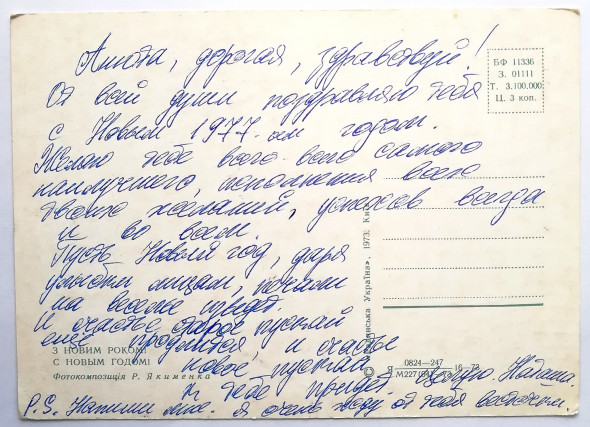 Анюта, дорогая, здравствуй!
От всей души поздравляю тебя
с Новым 1977-ым годом.
Желаю тебе всего-всего самого
наилучшего, исполнения всех
твоих желаний, успехов всегда
и во всем.
Пусть Новый год, даря
улыбки лицам,
на
И счастье старое пускай
ещё продлится, и счастье
новое пускай
к тебе придет. Наташа.
P.S. Напиши мне. Я очень жду от тебя весточки.
БФ 11336
З. 01111
Т. 3.100.000
Ц. 3 коп.
З НОВИМ РОКОМ!
С НОВЫМ ГОДОМ!
Фотокомпозиція Р. Якименка
Україна», 1973.
©
0824—247